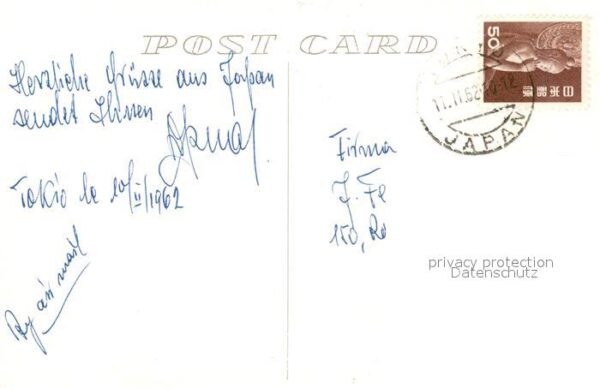 POST CARD
Herzliche Grüsse aus Japan
sendet Ihnen
Tokio le 10/II/1962
By air mail
Firma
J. Fe
150, Ro
50
日本郵便
JAPAN
privacy protection
Datenschutz